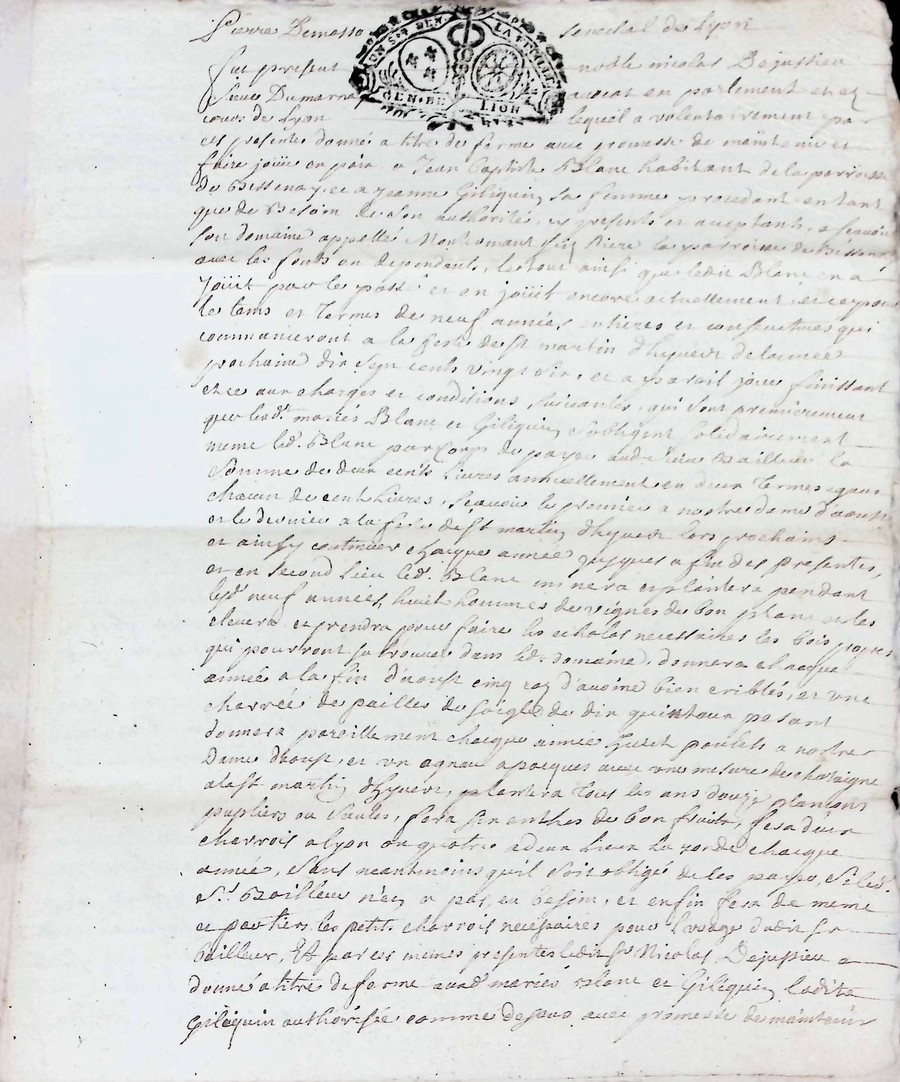 Pierre Demasso senechal de Lyon
fut present noble nicolas Dejussieu
sieur Dumarna avocat en parlement et ez
cours de Lyon lequel a volontairement par
ces presentes donné a titre de ferme avec promesse de maintenir et
faire jouir en paix a Jean Baptiste Blanc habitant de la parroisse
de Bessenay, et a jeanne Giliquin sa femme procedant en tant
que de Besoin de son authorité, icy presents et aceptants, a sçavoir
son domaine appellé Montromant la parroisse de Bessenay
avec les fonds en dependants, le tout ainsi que ledit Blanc en a
Joüit par le passé et en joüit encore actuellement, et ce pour
le tems et termes de neuf années entieres et consecutives qui
commanceront a la feste de St martin d'hyver de lannée
prochaine dix sept cents vingt six, et a pareil jour finissant
et ce aux charges et conditions suivantes, qui sont premierement
que led. mariés Blanc et Giliquin s'obligent solidairement
meme led. Blanc par corps de payer aud. sieur Bailleur la
somme de deux cents livres annuellement en deux termes egaux
chacun de cent livres, sçavoir le premier a nostre dame d'aoust
et le dernier a la feste de St martin d'hyver lors prochains
et ainsy continuer chacque année jusques a fin des presentes,
et en second lieu led. Blanc minera et plantera pendant
lesd. neuf années, huit hommes de vignes de bon plan et les
elevera et prendra pour faire les echalas necessaires les bois propres
qui pourront se trouver dans led. domaine, donnera chacque
année a la fin d'aoust cinq ras d'avoine bien criblés, et une
charrée de pailles de soigle de dix quintaux pesant
donnera pareillement chacque année huit poulets a nostre
Dame d'aoust, et un agneau a pacques avec une mesure de chataigne
a la St martin d'hyver, plantera tous les ans douze plançons
pupliers ou saules, fera six enthes de bon fruits, fera deux
charrois a lyon ou quatre a deux lieux la ronde chacque
année, sans neantmoins qu'il soit obligé de les payer, si led.
Sr. Bailleur n'en a pas eu besoin, et enfin fera de meme
et les petits charrois necessaires pour l'usage dudit sr
Bailleur, Et par ces memes presentes ledit Sr Nicolas Dejussieu a
donné a titre de ferme auxd. mariés Blanc et Giliquin ladite
Giliquin authorisée comme dessus avec promesse de maintenir
GEN. DE LION